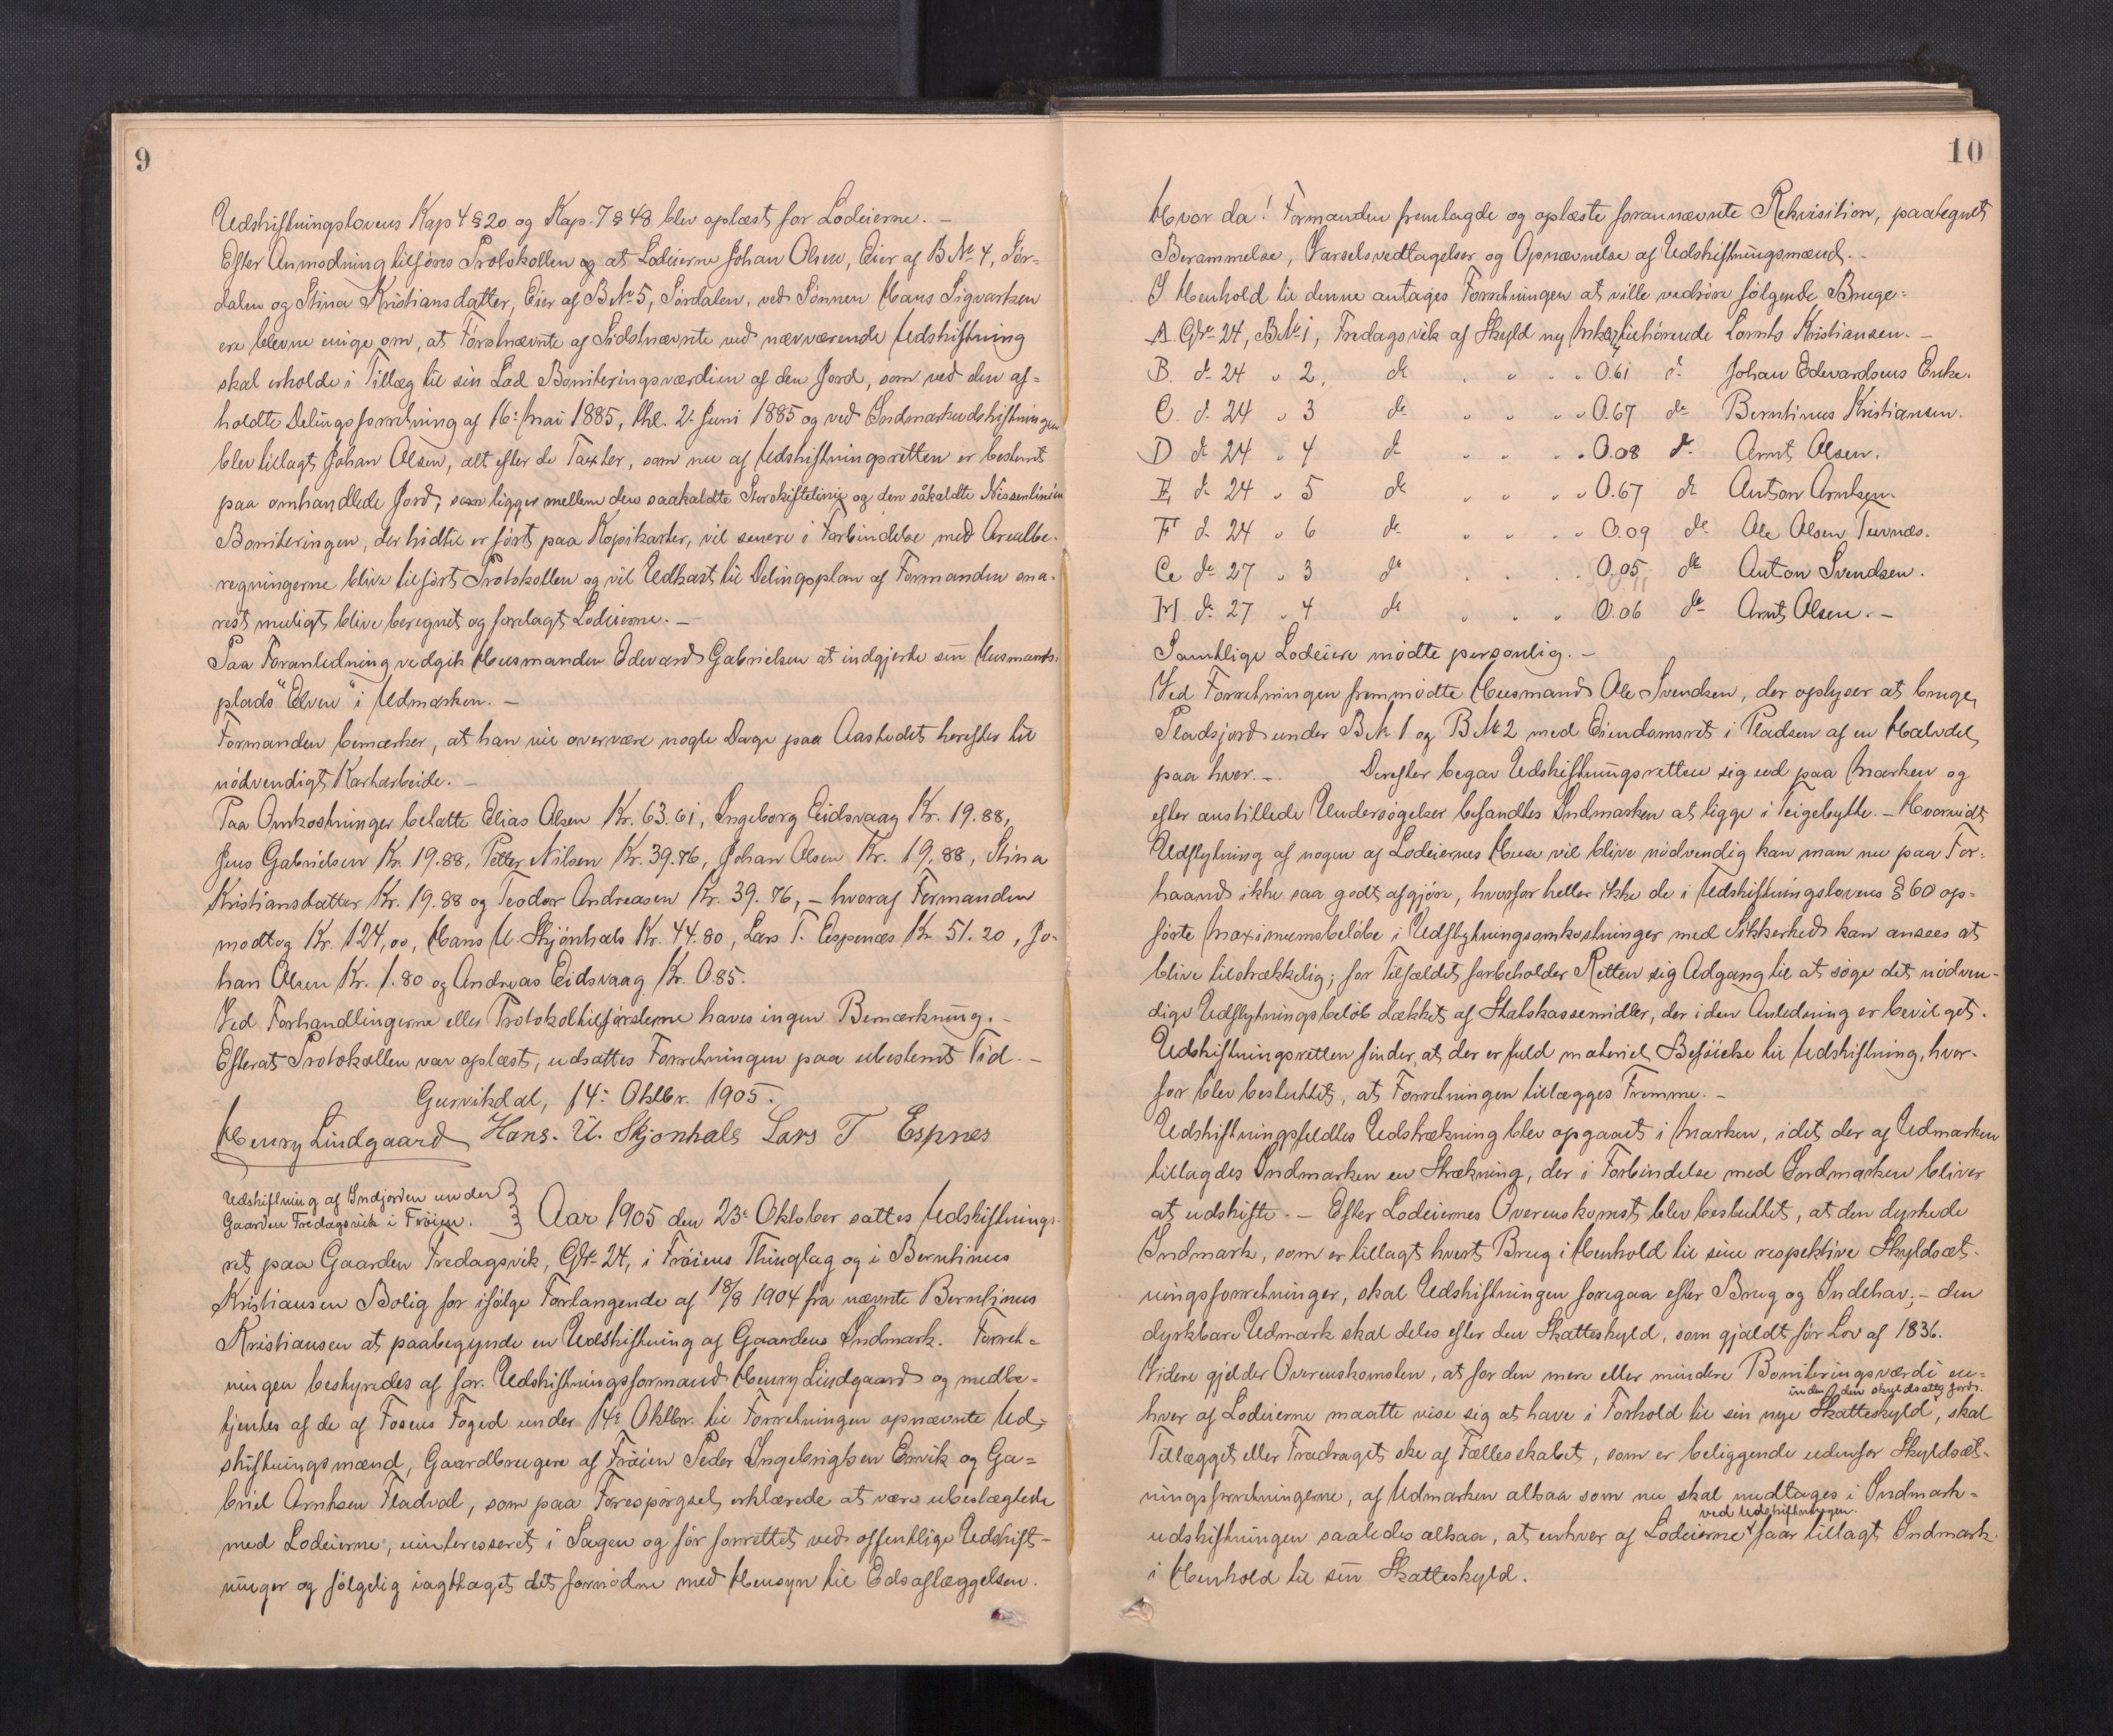 9
Udskiftningslovens Kap 4 § 20 og Kap. 7 § 48 blev oplæst for Lodeierne. -
Efter Anmodning tilføres Protokollen og at Lodeierne Johan Olsen, Eier af B.No 4, Sør-
dalen og Stina Kristiansdatter, Eier af B.No 5, Sørdalen, ved Sønnen Hans Sigvartsen
ere blevne enige om, at Førstnævnte af Sidstnævnte ved nærværende Udskiftning
skal erholde i Tillæg til sin Lod Boniteringsværdien af den Jord, som ved den af-
holdte Delingsforretning af 16: Mai 1885, thl. 2. Juni 1885 og ved Indmarkudskiftningen
blev tillagt Johan Olsen, alt efter de Taxter, som nu af Udskiftningsretten er bestemt
paa omhandlede Jord, som ligger mellem den saakaldte Storskiftelinie og den såkaldte Nissenlinien
Boniteringen, der hidtil er ført paa Kopikarter, vil senere i Forbindelse med Arealbe-
regningerne blive tilført Protokollen og vil Udkast til Delingsplan af Formanden sna-
rest muligt blive beregnet og forelagt Lodeierne. -
Paa Foranledning vedgik Husmanden Edevard Gabrielsen at indgjerde sin Husmands-
plads "Elven" i Udmarken. -
Formanden bemærker, at han vil overvære nogle Dage paa Aastedet herefter til
nødvendigt Kartarbeide. -
Paa Omkostninger betalte Elias Olsen Kr. 63.61, Ingeborg Eidsvaag Kr. 19.88,
Jens Gabrielsen Kr. 19.88, Petter Nilsen Kr. 39.76, Johan Olsen Kr. 19.88, Stina
Kristiansdatter Kr. 19.88 og Teodor Andreasen Kr. 39.76, - hvoraf Formanden
modtog Kr. 124,00, Hans U. Skjönhals Kr. 44.80, Lars T. Espenæs Kr. 51.20, Jo-
han Olsen Kr. 1.80 og Andreas Eidsvaag Kr. 0.85.
Ved Forhandlingerne eller Protokoltilførslerne haves ingen Bemærkning. -
Efterat Protokollen var oplæst, udsattes Forretningen paa ubestemt Tid. -
Gurvikdal, 14: Oktbr. 1905.
Henry Lindgaard Hans. U. Skjonhals Lars T Espnes
Udskiftning af Indjorden under
Gaarden Fredagsvik i Frøien.
Aar 1905 den 23: Oktober sattes Udskiftnings-
ret paa Gaarden Fredagsvik, GNr 24, i Frøiens Thinglag og i Berntinus
Kristiansen Bolig for ifølge Forlangende af 18/8 1904 fra nævnte Berntinus
Kristiansen at paabegynde en Udskiftning af Gaardens Indmark. Forret-
ningen bestyredes af for. Udskiftningsformand Henry Lindgaard og medbe-
tjentes af de af Fosens Foged under 14: Oktbr. til Forretningen opnævnte Ud-
skiftningsmænd, Gaardbrugere af Frøien Peder Ingebrigtsen Ervik og Ga-
briel Arntsen Fladval, som paa Forespørgsel erklærede at være ubeslægtede
med Lodeierne, uinteresseret i Sagen og før forrettet ved offentlige Udskift-
ninger og følgelig iagttaget det fornødne med Hensyn til Edsaflæggelsen.
10
Hvor da! Formanden fremlagde og oplæste forannævnte Rekvisition, paategnet
Berammelse, Varselsvedtagelser og Opnævnelse af Udskiftningsmænd. -
I Henhold til denne antages Forretningen at ville vedrøre følgende Bruge:
A. GNr 24, BNo 1, Fredagsvik af Skyld ny Mk tilhørende Lornts Kristiansen. -
B. do 24 " 2, do " " " 0.61 do Johan Edevardsens Enke.
C. do 24 " 3 do " " " 0.67 do Berntinus Kristiansen.
D do 24 " 4 do " " " 0.08 do Arnt Olsen.
E do 24 " 5 do " " " 0.67 do Anton Arntsen.
F do 24 " 6 do " " " 0.09 do Ole Olsen Tuvnæs.
G do 27 " 3 do " " " 0.05 do Anton Svendsen.
H do 27 " 4 do " " " 0.06 do Arnt Olsen. -
Samtlige Lodeiere mødte personlig. -
Ved Forretningen fremmødte Husmand Ole Svendsen, der oplyser at bruge
Pladsjord under BNo 1 og BNo 2 med Eiendomsret i Pladsen af en Halvdel
paa hver. - Derefter begav Udskiftningsretten sig ud paa Marken og
efter anstillede Undersøgelser befandtes Indmarken at ligge i Teigebytte. - Hvorvidt
Udflytning af nogen af Lodeiernes Huse vil blive nødvendig kan man nu paa For-
haand ikke saa godt afgjøre, hvorfor heller ikke de i Udskiftningslovens § 60 op-
førte Maximumsbeløbe i Udflytningsomkostninger med Sikkerhed kan ansees at
blive tilstrækkelig; for Tilfældet forbeholder Retten sig Adgang til at søge det nødven-
dige Udflytningsbeløb dækket af Statskassemidler, der i den Anledning er bevilget.
Udskiftningsretten finder, at der er fuld materiel Beføielse til Udskiftning, hvor-
for blev besluttet, at Forretningen tillægges Fremme. -
Udskiftningsfeldtes Udstrækning blev opgaaet i Marken, idet der af Udmarken
tillagdes Indmarken en Strækning, der i Forbindelse med Indmarken bliver
at udskifte. - Efter Lodeiernes Overenskomst blev besluttet, at den dyrkede
Indmark, som er tillagt hvert Brug i Henhold til sine respektive Skyldsæt-
ningsforretninger, skal Udskiftningen foregaa efter Brug og Indehav; - den
dyrkbare Udmark skal deles efter den Skatteskyld, som gjaldt før Lov af 1836.
Videre gjelder Overenskomsten, at for den mere eller mindre Boniteringsværdi en-
inden den skyldsatte Jord.
hver af Lodeierne maatte vise sig at have i Forhold til sin nye Skatteskyld, skal
Tillægget eller Fradraget ske af Fællesskabet, som er beliggende udenfor Skyldsæt-
ningsforretningerne, af Udmarken altsaa som nu skal medtages i Indmark-
ved Udskiftningen.
udskiftningen saaledes altsaa, at enhver af Lodeierne faar tillagt Indmark
i Henhold til sin Skatteskyld.